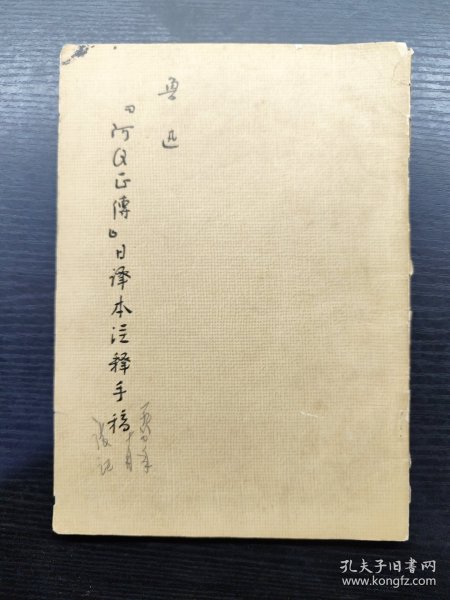 鲁迅
『阿Q正傳』日译本注释手稿
十月
孔夫子旧书网
www.kongfz.com